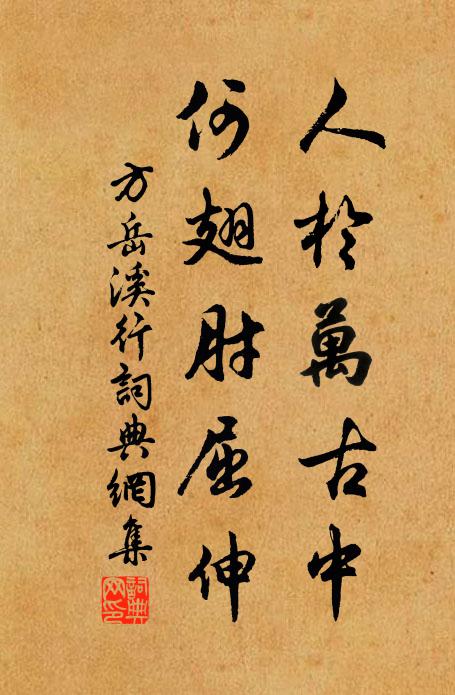 人於萬古中
何翅肘屈伸
方岳溪行詞典網集
詞典網印